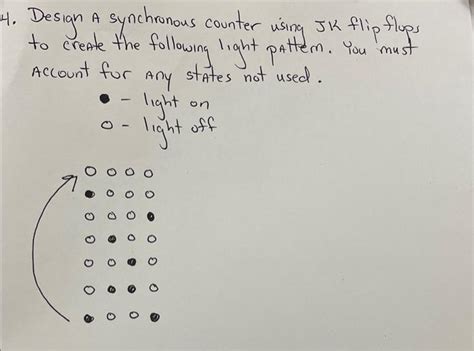 4. Design A synchronous counter using JK flip flops
to create the following light pattern. You must
Account for Any states not used.
● - light on
○ - light off
○ ○ ○ ○
● ○ ○ ○
○ ○ ○ ●
○ ● ○ ○
○ ○ ● ○
○ ● ● ○
● ○ ○ ●